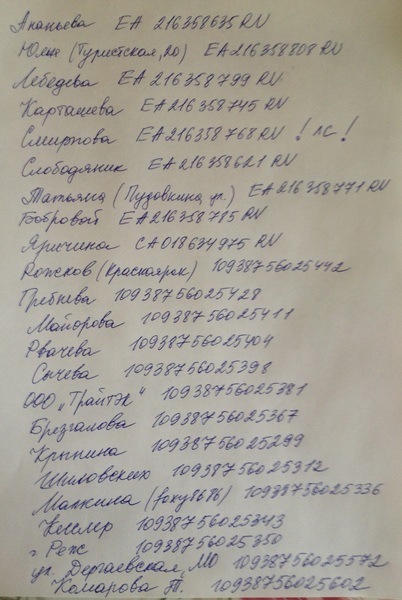 Ананьева EA 216358635 RU
Юлж (Туристская, 20) EA 216358808 RU
Лебедева EA 216358799 RU
Карташева EA 216358745 RU
Смирнова EA 216358768 RU ! ЛС !
Слободяник EA 216358621 RU
Татьяна (Пудовкина ул.) EA 216358771 RU
Бобровой EA 216358785 RU
CA 018634975 RU
Рожков (Красноярск) 10938756025442
Гребнева 10938756025428
Майорова 10938756025411
Рвачева 10938756025404
Сычева 10938756025398
ООО „Трайтэк“ 10938756025381
Брезгалова 10938756025367
Крынина 10938756025299
Шиловских 10938756025312
Малкина (foxy8686) 10938756025336
Кесслер 10938756025343
г. Реж 10938756025350
ул. Дергаевская, МО 10938756025572
Комарова Т. 10938756025602